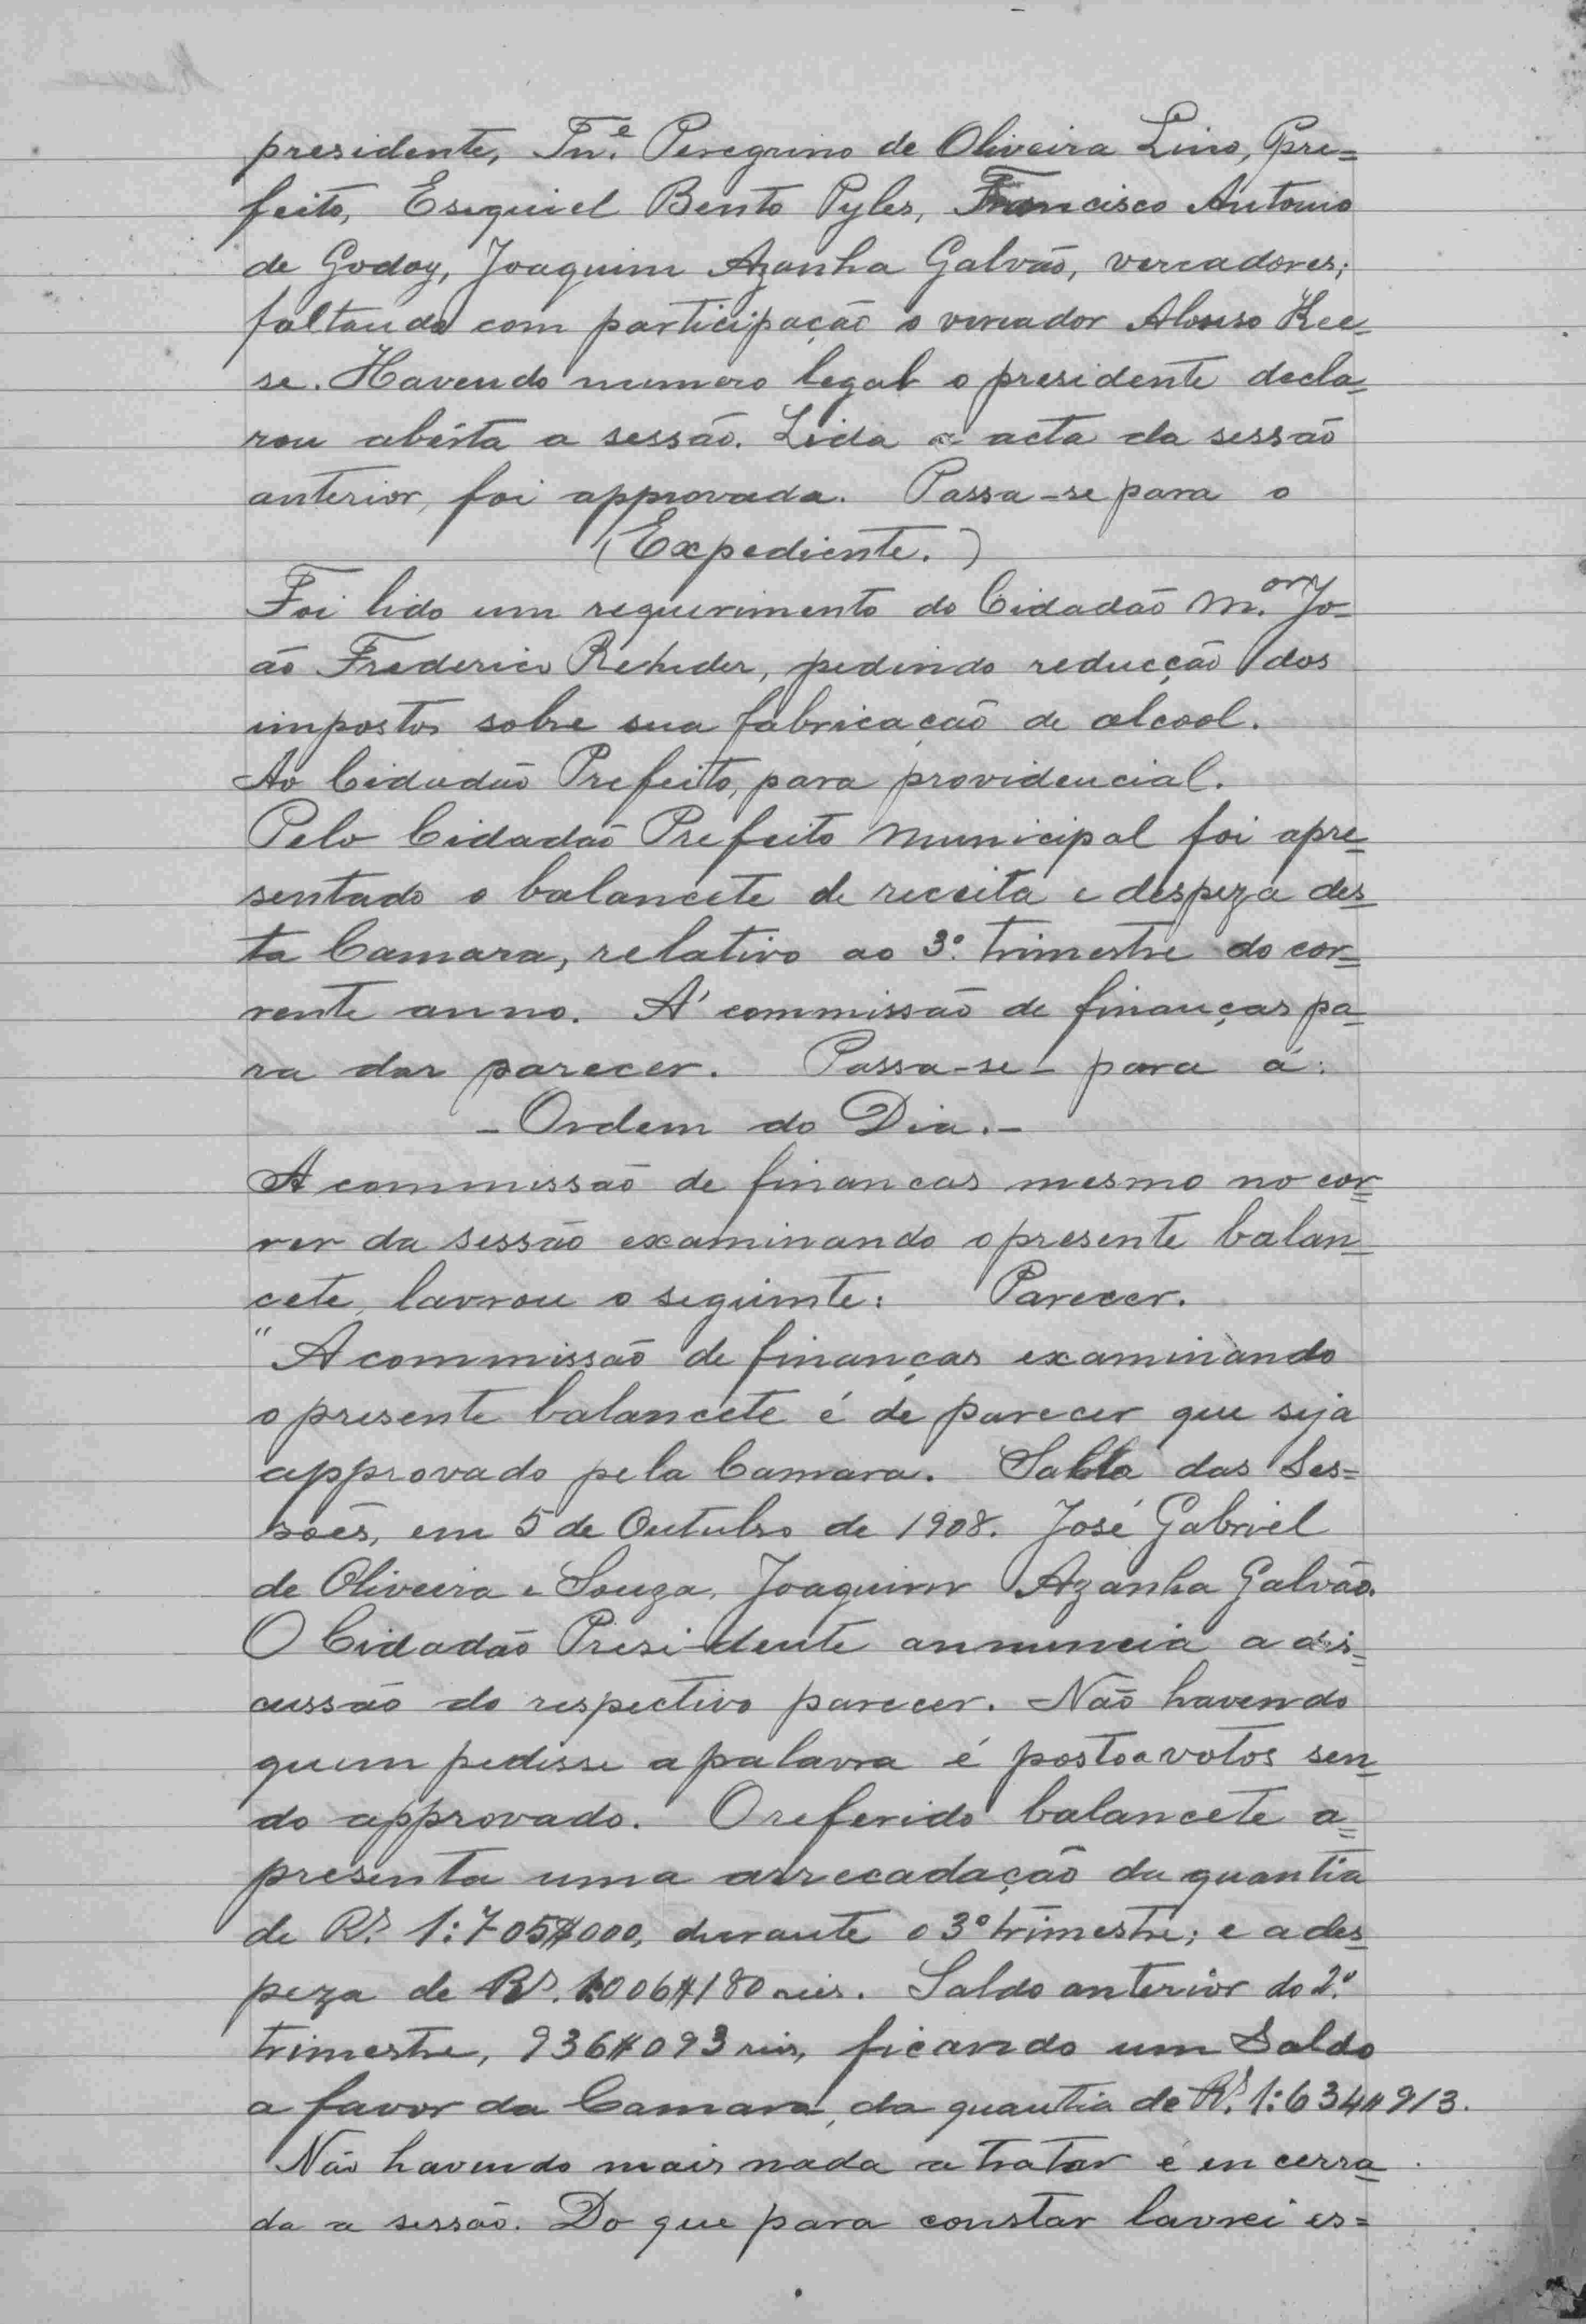 presidente, Tn.e Peregrino de Oliveira Lino, Pre=
feito, Esequiel Bento Pyles, Francisco Antonio
de Godoy, Joaquim Azanha Galvão, vereadores;
faltando com participação o vereador Alonso Kee-
se. Havendo numero legal o presidente decla=
rou abérta a sessão. Lida a acta da sessão
anterior, foi approvada. Passa-se para o
(Expediente.)
Foi lido um requerimento do Cidadão M.or Jo-
ão Frederico Rehder, pedindo reducção dos
impostos sobre sua fabricação de alcool.
Ao Cidadão Prefeito, para providencial.
Pelo Cidadão Prefeito Municipal foi apre=
sentado o balancete de receita e despeza des=
ta Camara, relativo ao 3º. trimestre do cor=
rente anno. A' commissão de finanças pa=
ra dar parecer. Passa-se- para á:
- Ordem do Dia. -
A commissão de financas mesmo no cor=
rer da sessão examinando o presente balan=
cete, lavrou o seguinte: Parecer.
"A commissão de finanças examinando
o presente balancete é de parecer que seja
approvado pela Camara. Salla das Ses=
sões, em 5 de Outubro de 1908. José Gabriel
de Oliveira e Souza, Joaquim Azanha Galvão.
O Cidadão Presidente annuncia a dis=
cussão do respectivo parecer. Não havendo
quem pedisse a palavra é posto a votos sen=
do approvado. O referido balancete a=
presenta uma arrecadação da quantia
de Rs. 1:705$000, durante o 3º trimestre; e a des=
peza de Rs. 1:006$180 reis. Saldo anterior do 2º.
trimestre, 936$093 reis, ficando um Saldo
a favor da Camara, da quantia de Rs. 1:634$913.
Não havendo mais nada a tratar é encerra=
da a sessão. Do que para constar lavrei es=